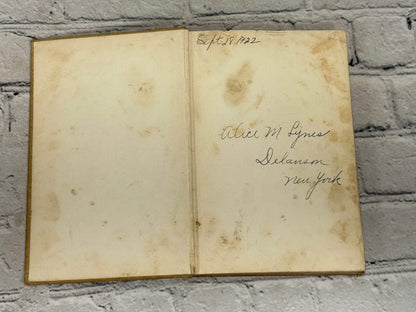 Sept 28 1922
Alice M Lynes
Delanson
New York